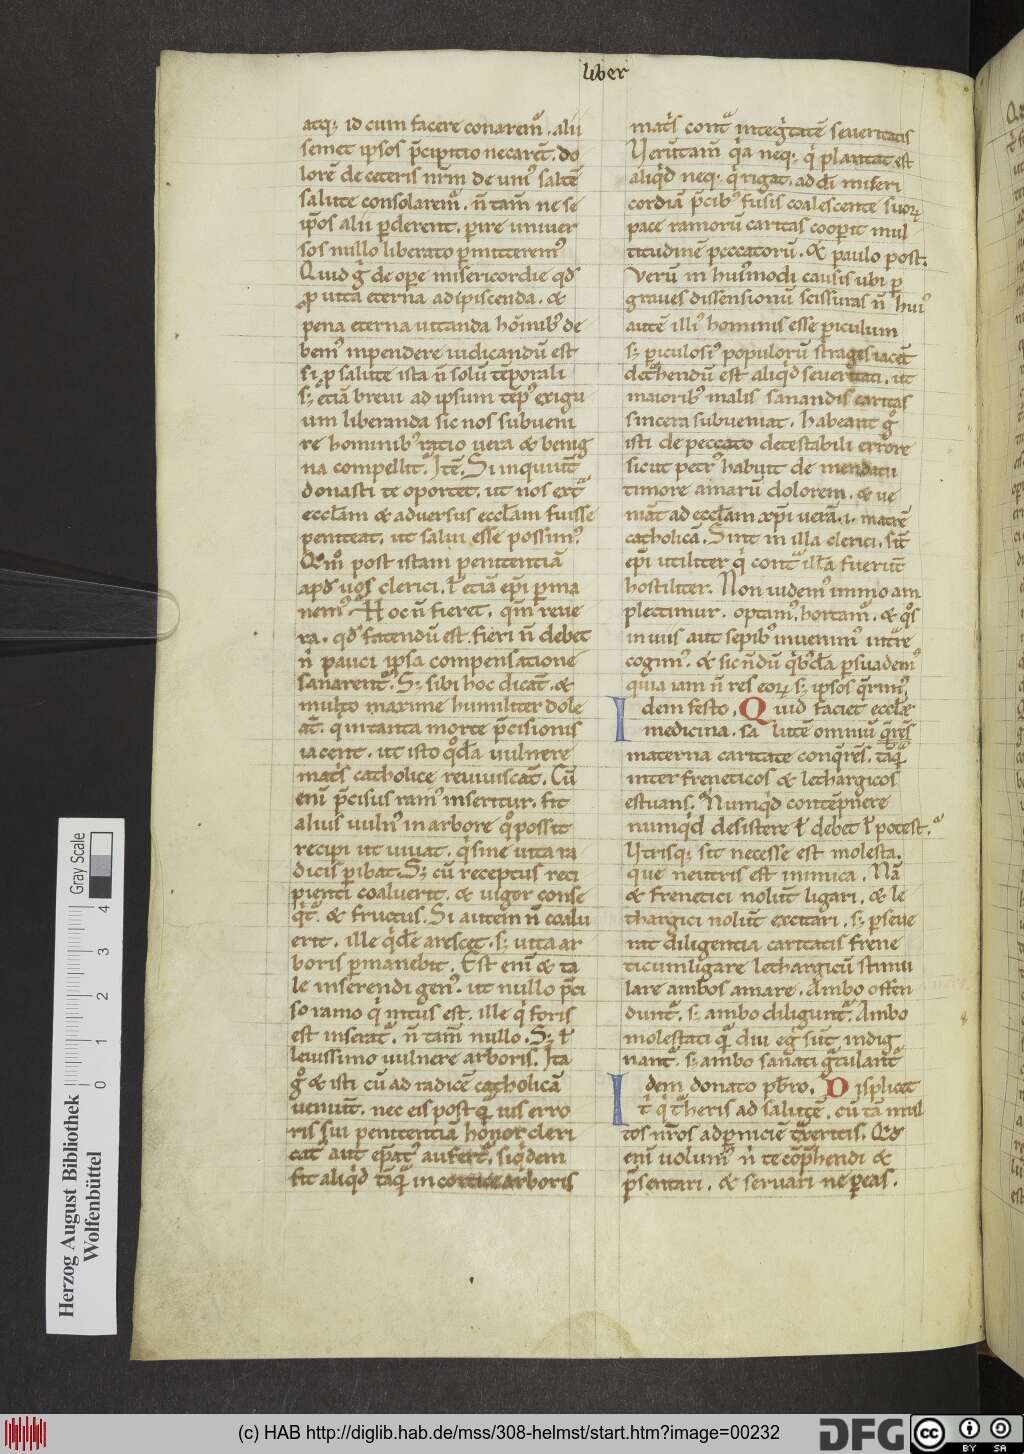 liber
atq; id cum facere conarem᷑. alii
semet ipsos p̄cipitio necarēt. do
lorē de ceteris nr̄m de uni᷒ saltē
salute consolarem᷑. ñ tam̄ ne se
ip̄os alii ꝑderent. ꝑire uniuer
sos nullo liberato ꝑmitterem᷒
Quid g̊ de oꝑe misericordie qd̄
ꝓ uita eterna adipiscenda. &
pena eterna uitanda hōinib᷒ de
bem᷒ inpendere iudicandū est
si ꝓ salute ista ñ solū tēporali
s; etiā breui ad ipsum tēp᷒ exigu
um liberanda sic nos subueni
re hominib᷒ ratio uera & benig
na compellit. Itē. Si inquiunt
donasti te oportet. ut nos extᷓ
eccl̄am & aduersus eccl̄am fuisse
peniteat. ut salui esse possim᷒.
Qm̊ post istam penitentiā
apd̄ uos clerici. ł etiā ep̄i ꝑma
nem᷒. Hoc ñ fieret. qm̄ reue
ra. qd̄ fatendū est. fieri ñ debet
n̍ pauci ipsa compensatione
sanarent᷑. S; sibi hoc dicāt. &
multo maxime humiliter dole
āt. q̍ in tanta morte p̄cisionis
iacent. ut isto q̊dā uulnere
mat̄s catholice reuiuiscāt. Cū
eni p̄cisus ram᷒ inseritur. fit
alius uuln᷒ in arbore q̊ possit
recipi ut uiuat. q̍ sine uita ra
dicis ꝑibat. S; cū receptus reci
pienti coaluerit. & uigor conse
q̍t᷑. & fructus. Si autem ñ coalu
erit. ille q̍dē arescet. s; uita ar
boris ꝑmanebit. Est eni & ta
le inserendi gen᷒. ut nullo p̄ci
so ramo q̍ intus est. ille q̍ foris
est inserat᷑. ñ tam̄ nullo. S; ł
leuissimo uulnere arboris. Ita
g̊ & isti cū ad radicē catholicā
ueniunt. nec eis post qᷓ uis erro
ris sui penitentiā honor cleri
cat᷒ aut ep̄at᷒ aufert᷑. siq̍dem
fit aliq̍d tāqᷓ in cortice arboris
mat̄s contᷓ integ̍tatē seueritatis
Verūtam̄ q̍a neq; q̍ plantat est
aliq̍d neq; q̍ rigat. ad dī miseri
cordiā p̄cib᷒ fusis coalescente suoꝝ
pace ramorū caritas cooꝑit mul
titudinē peccatorū. & paulo post.
Verū in hui᷒modi causis ubi ꝑ
graues dissensionū scissuras ñ hui᷒
autē illi᷒ hominis esse ꝑiculum
s; ꝑiculosi᷒ populorū strages iacet
det̍hendū est aliq̍d seueritati. ut
maiorib᷒ malis sanandis caritas
sincera subueniat. habeant g̊
isti de peccato detestabili errore
sicut petr᷒ habuit de mendatii
timore amarū dolorem. & ue
niāt ad eccl̄am xp̄i uerā. i. matrē
catholicā. Sint in illa clerici. sīt
ep̄i utiliter q̍ contᷓ illā fuerunt
hostiliter. Non uidem᷒ immo am
plectimur. optam᷒. hortam᷑. & q̊s
in uiis aut sepib᷒ inuenim᷒ intare
cogim᷒. & sic nōdū q̍b᷒dā ꝑsuadem᷒
quia iam ñ res eoꝝ s; ipsos q̄rim᷒.
Idem festo. Quid faciet eccl̄e
medicina. salutē omniū q̄rēs
materna caritate conq̄rēs. tāqᷓ
inter freneticos & lethargicos
estuans. Nunq̍d contēpnere
nunq̍d desistere ł debet ł potest.
Utrisq; sit necesse est molesta.
que neutris est inimica. Nā
& frenetici nolunt ligari. & le
thargici nolunt excitari. s; ꝑseue
rat diligentia caritatis frene
ticum ligare lethargicū stimu
lare ambos amare. Ambo offen
dunt᷑. s; ambo diligunt᷑. Ambo
molestati qᷓ diu eg̍ sunt indig
nant᷑. s; ambo sanati g̍tulant᷑
Idem donato p̄bro. Displicet
t̍ q̍ t̍heris ad salutē. cū tā mul
tos nr̄os ad ꝑniciē t̍xeritis. Qd̄
eni uolum᷒ n̍ te cōp̄hendi &
p̄sentari. & seruari ne ꝑeas.
Gray Scale
4
3
2
1
0
Herzog August Bibliothek
Wolfenbüttel
(c) HAB http://diglib.hab.de/mss/308-helmst/start.htm?image=00232
DFG
cc
BY
SA